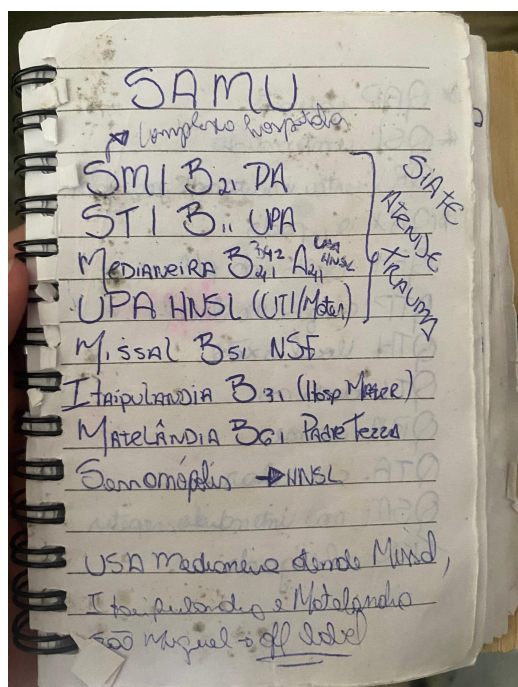 SAMU
Complexo hospitalar
SMI B21 PA
STI B11 UPA
MEDIANEIRA B241 3142 A241 UPA HNSL
UPA HNSL (UTI/Mater)
SIATE
ATENDE
TRAUMA
MISSAL B51 NSF
ITAIPULANDIA B31 (Hosp MATER)
MATELÂNDIA B61 PADRE TEZZA
Serranópolis → HNSL
USA Medianeira atende Missal,
Itaipulandia e Matelandia
São Miguel → off label